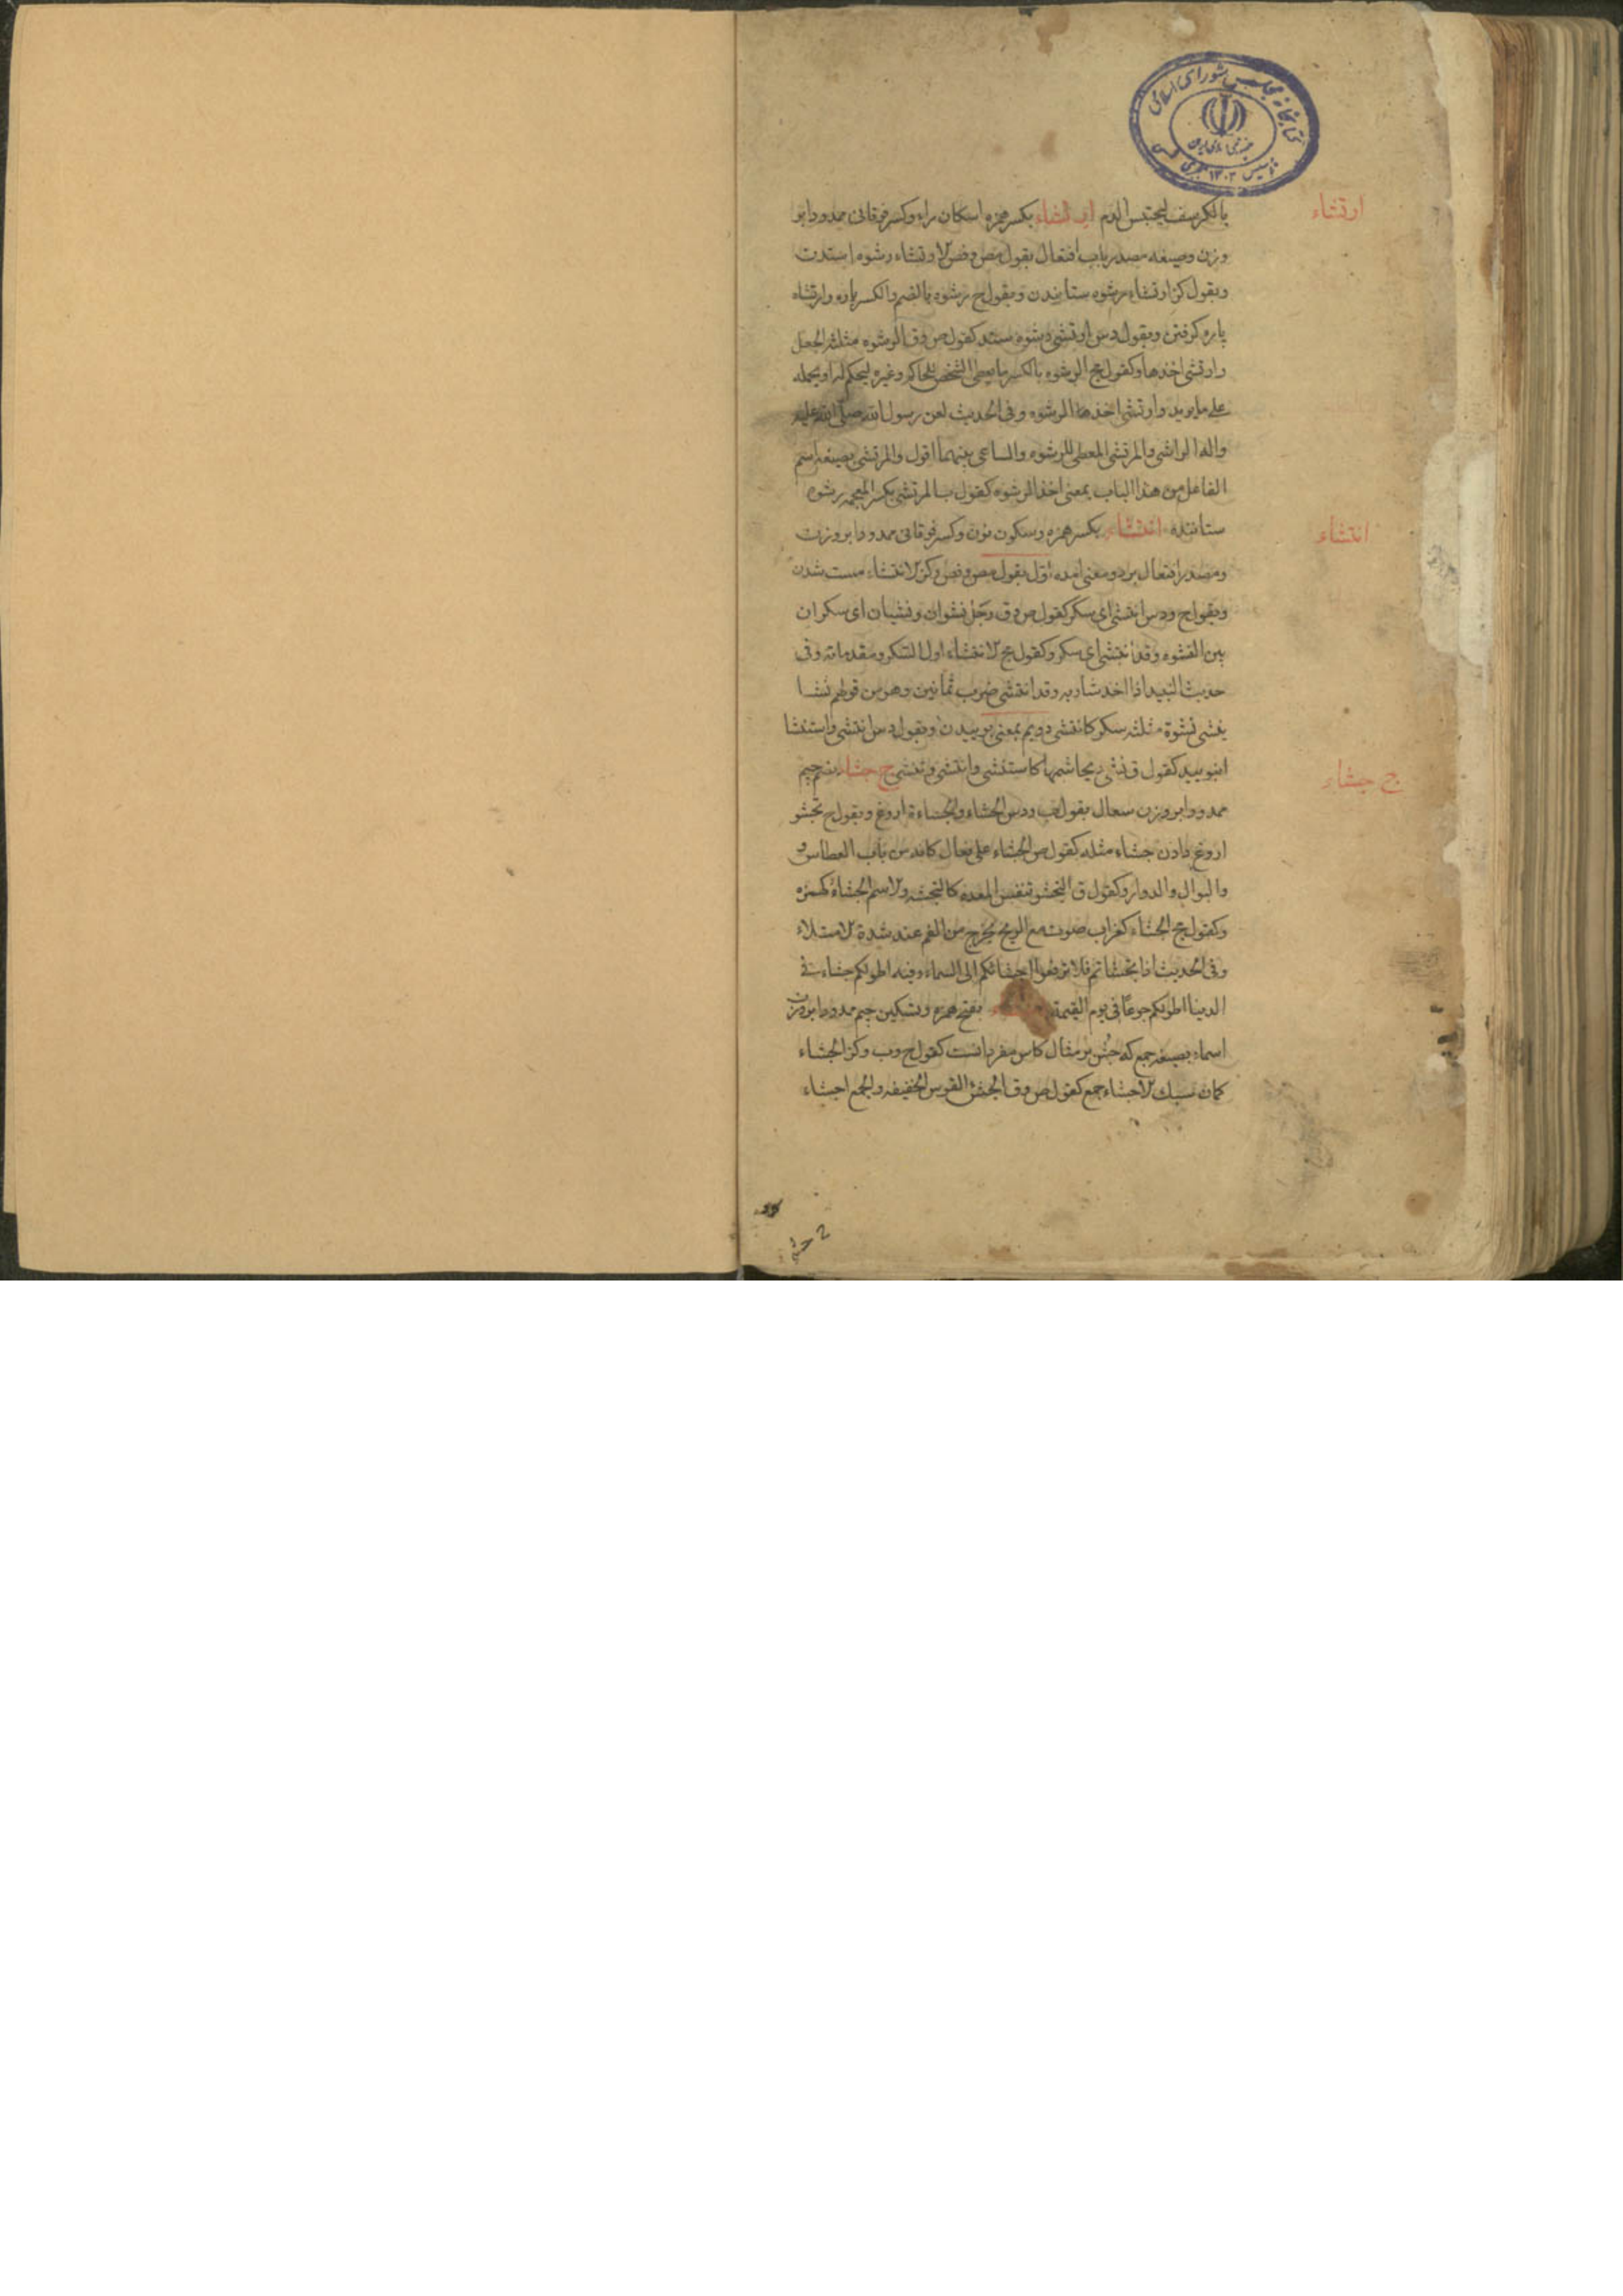 کتابخانه مجلس شورای اسلامی
تاسیس ۱۳۰۲ شمسی
ارتشاء
بالکرسف لیحتبس الدم ارتشاء بکسر همزه اسکان راء وکسر فوقانی ممدودا بر
وزن وصیغه مصدر باب افتعال بقول مص وفض الارتشاء رشوه استدن
وبقول کز ارتشاء رشوه ستانیدن وبقول ح رشوه بالضم والکسر پاره وارتشاء
پاره کرفتن وبقول دس ارتشی رشوه ستد کقول ص وق الرشوه مثلثه الجعل
وارتشی اخذها وکقول مج الرشوه بالکسر ما یعطی الشخص للحاکم وغیره لیحکم له او یحمله
علی ما یرید وارتشی اخذ الرشوه وفی الحدیث لعن رسول الله صلی الله علیه
واله الراشی والمرتشی المعطی للرشوه والساعی بینهما اقول والمرتشی بصیغه اسم
الفاعل من هذا الباب بمعنی اخذ الرشوه کقول ب المرتشی بکسر المعجمه رشوه
انتشاء
ستاننده انتشاء بکسر همزه وسکون نون وکسر فوقانی ممدودا بر وزن
ومصدر افتعال بر دو معنی امده اول بقول مص وفض وکز الانتشاء مست شدن
وبقول ح ودس انتشی ای سکر کقول ص وق رجل نشوان ونشیان ای سکران
بین النشوه وقد انتشی ای سکر وکقول مج الانتشاء اول السکر ومقدماته وفی
حدیث النبید اذا اخذ شاربه وقد انتشی ضرب ثمانین وهو من قولهم نشا
ینشی نشوة مثلثه سکر کانتشی دویم بمعنی بوییدن وبقول دس انتشی واستنشا
ج جشاء
انبویید کقول ق نشی ریحا شمها کاستنشی وانتشی وتنشی ج جشاء بضم جیم
ممدودا بر وزن سعال بقول ب ودس الجشاء والجشاءة اروغ وبقول ح تجشو
اروغ دادن جشاء مثله کقول ص الجشاء علی فعال کانه من باب العطاس و
والبوال والدوار وکقول ق التجشو تنفس المعده کالتجشئه والاسم الجشاة کهمزه
وکقول مج الجشاء کغراب صوت مع الریح یخرج من الفم عند شدة الامتلاء
وفی الحدیث اذا تجشاتم فلا ترفعوا جشائکم الی السماء وفیه اطولکم جشاء فی
الدنیا اطولکم جوعا فی یوم القیمة بفتح همزه وتسکین جیم ممدودا بر وزن
اسماء بصیغه جمع که جشء بر مثال کاس مفرد انست کقول ح وب وکز الجشاء
کمان سبک الاجشاء جمع کقول ص وق الجشء القوس الخفیفه والجمع اجشاء